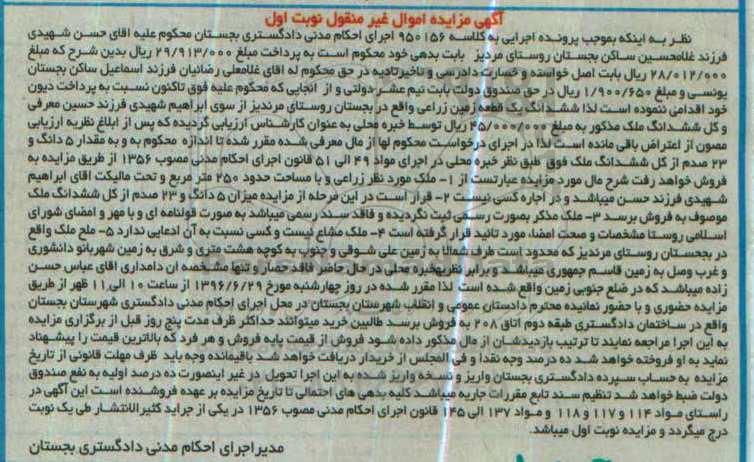 آگهی مزایده اموال غیر منقول نوبت اول
نظر به اینکه بموجب پرونده اجرایی به کلاسه ۹۵۰۱۵۶ اجرای احکام مدنی دادگستری بجستان محکوم علیه اقای حسن شهیدی
فرزند غلامحسین ساکن بجستان روستای مردیز بابت بدهی خود محکوم است به پرداخت مبلغ ۲۹/۹۱۳/۰۰۰ ریال بدین شرح که مبلغ
۲۸/۰۱۲/۰۰۰ ریال بابت اصل خواسته و خسارت دادرسی و تاخیرتادیه در حق محکوم له اقای غلامعلی رضائیان فرزند اسماعیل ساکن بجستان
یونسی و مبلغ ۱/۹۰۰/۶۵۰ ریال در حق صندوق دولت بابت نیم عشر دولتی و از انجایی که محکوم علیه فوق تاکنون نسبت به پرداخت دیون
خود اقدامی ننموده است لذا ششدانگ یک قطعه زمین زراعی واقع در بجستان روستای مرندیز از سوی ابراهیم شهیدی فرزند حسین معرفی
و کل ششدانگ ملک مذکور به مبلغ ۴۵/۰۰۰/۰۰۰ ریال توسط خبره محلی به عنوان کارشناس ارزیابی گردیده که پس از ابلاغ نظریه ارزیابی
مصون از اعتراض باقی مانده است لذا در اجرای درخواست محکوم لها از مال معرفی شده مقرر شده تا اندازه محکوم به و به مقدار ۵ دانگ و
۲۳ صدم از کل ششدانگ ملک فوق طبق نظر خبره محلی در اجرای مواد ۴۹ الی ۵۱ قانون اجرای احکام مدنی مصوب ۱۳۵۶ از طریق مزایده به
فروش خواهد رفت شرح مال مورد مزایده عبارتست از ۱- ملک مورد نظر زراعی و با مساحت حدود ۲۵۰ متر مربع و تحت مالکیت اقای ابراهیم
شهیدی فرزند حسن میباشد و در اجاره کسی نیست ۲- قرار است در این مرحله از مزایده میزان ۵ دانگ و ۲۳ صدم از کل ششدانگ ملک
موصوف به فروش برسد ۳- ملک مذکر بصورت رسمی ثبت نگردیده و فاقد سند رسمی میباشد به صورت قولنامه ای و با مهر و امضای شورای
اسلامی روستا مشخصات و صحت امضاء مورد تائید قرار گرفته است ۴- ملک مشاع نیست و کسی نسبت به آن ادعایی ندارد ۵- ملع ملک واقع
در بجحستان روستای مرندیز که محدود است طرف شمالا به زمین علی شوقی و جنوب به کوچه هشت متری و شرق به زمین شهربانو دانشوری
و غرب وصل به زمین قاسم جمهوری میباشد و برابر نظریه خبره محلی در حال حاضر فاقد حصار و تنها مشخصه ان دامداری اقای عباس حسن
زاده میباشد که در ضلع جنوبی زمین واقع شده است لذا مقرر شده در روز چهارشنبه مورخ ۱۳۹۶/۶/۲۹ از ساعت ۱۰ الی ۱۱ ظهر از طریق
مزایده حضوری و با حضور نماینده محترم دادستان عمومی و انقلاب شهرستان بجستان در محل اجرای احکام مدنی دادگستری شهرستان بجستان
واقع در ساختمان دادگستری طبقه دوم اتاق ۲۰۸ به فروش برسد طالبین خرید میتوانند حداکثر ظرف مدت پنج روز قبل از برگزاری مزایده
به این اجرا مراجعه نمایند تا ترتیب بازدیدشان از مال مذکور داده شود فروش از قیمت پایه فروش و هر فرد که بالاترین قیمت را پیشنهاد
نماید به او فروخته خواهد شد ده درصد وجه نقدا و فی المجلس از خریدار دریافت خواهد شد باقیمانده وجه باید ظرف مهلت قانونی از تاریخ
مزایده به حساب سپرده دادگستری بجستان واریز و نسخه واریز شده به این اجرا تحویل در غیر اینصورت ده درصد اولیه به نفع صندوق
دولت ضبط خواهد شد تنظیم سند تابع مقررات جاریه میباشد کلیه بدهی های احتمالی تا تاریخ مزایده بر عهده فروشنده است این آگهی در
راستای مواد ۱۱۴ و ۱۱۷ و ۱۱۸ و مواد ۱۳۷ الی ۱۴۵ قانون اجرای احکام مدنی مصوب ۱۳۵۶ در یکی از جراید کثیرالانتشار طی یک نوبت
درج میگردد و مزایده نوبت اول میباشد.
مدیر اجرای احکام مدنی دادگستری بجستان